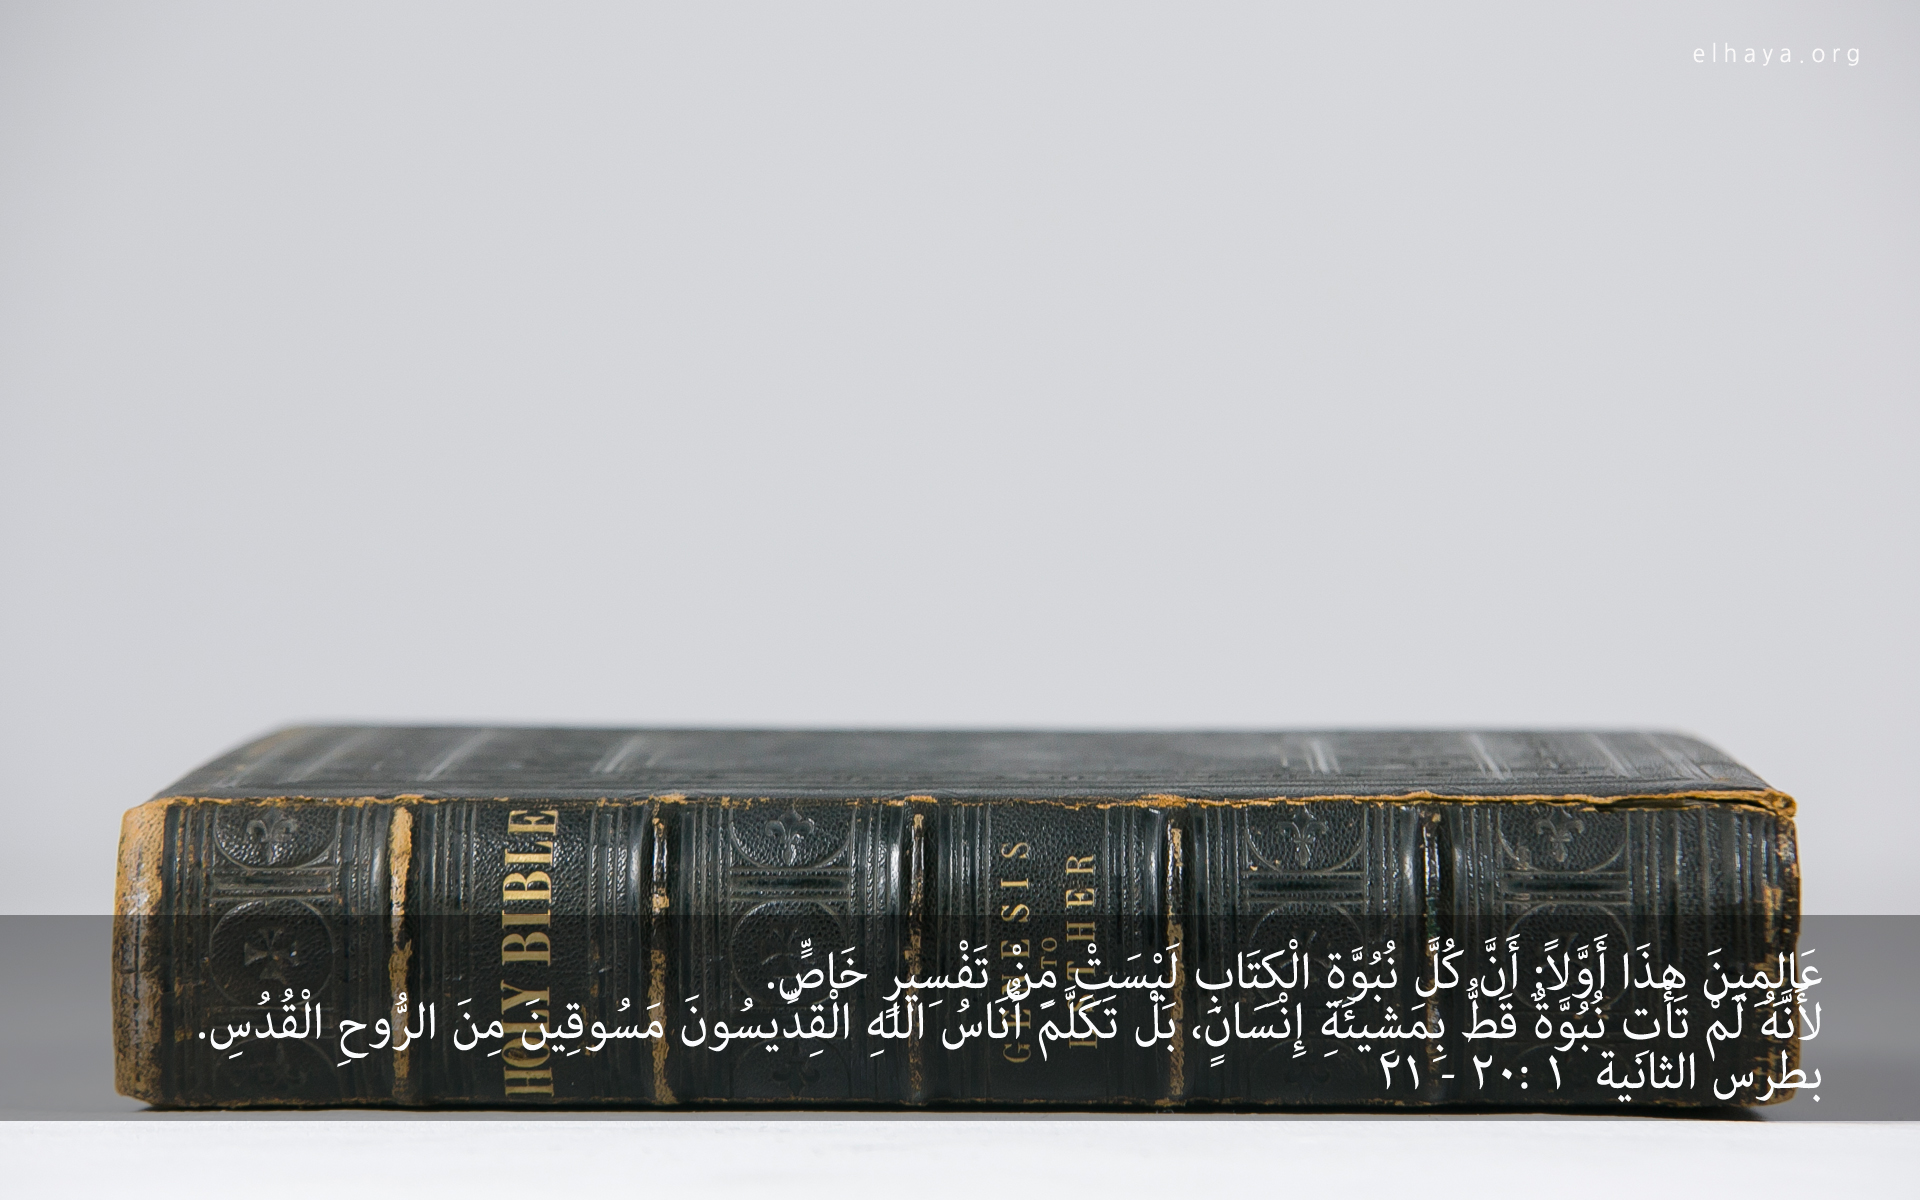 elhaya.org
HOLY BIBLE
GENESIS
TO
ESTHER
عَالِمِينَ هذَا أَوَّلاً: أَنَّ كُلَّ نُبُوَّةِ الْكِتَابِ لَيْسَتْ مِنْ تَفْسِيرٍ خَاصٍّ.
لأَنَّهُ لَمْ تَأْتِ نُبُوَّةٌ قَطُّ بِمَشِيئَةِ إِنْسَانٍ، بَلْ تَكَلَّمَ أُنَاسُ اللهِ الْقِدِّيسُونَ مَسُوقِينَ مِنَ الرُّوحِ الْقُدُسِ.
بطرس الثانية ١ :٢٠ - ٢١